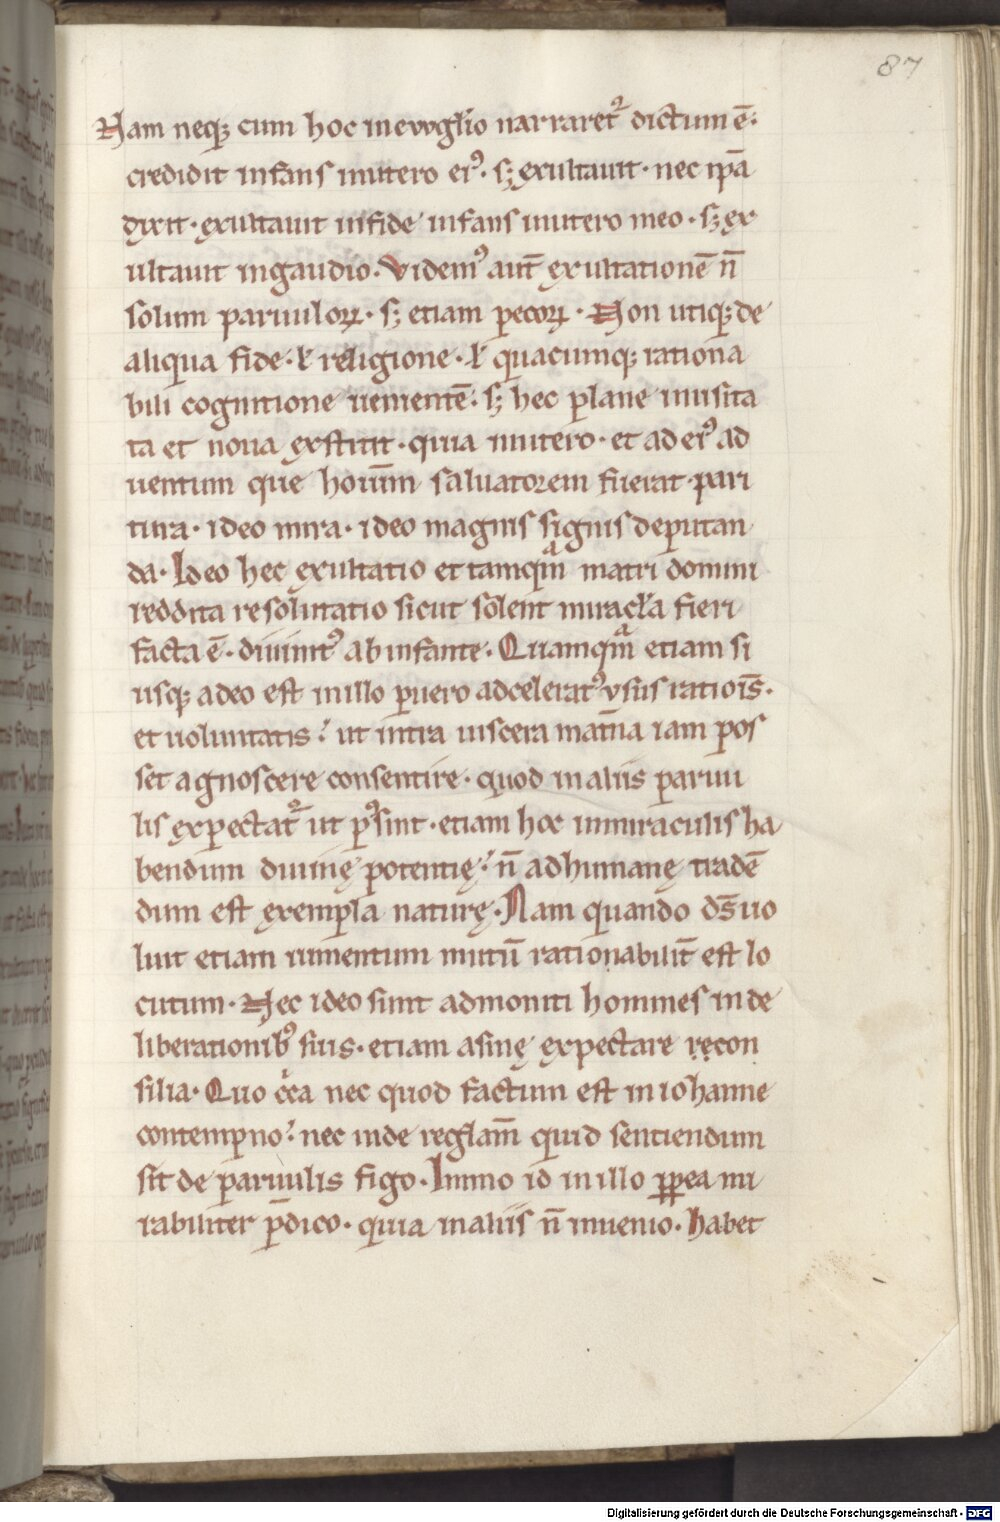 87
Nam neq; cum hoc inevvgl̃io narraret᷑ dictum ē·
credidit infans inutero eiꝰ· s; exultauit· nec ip̄a
dixit· exultauit infide infans inutero meo· s; ex
ultauit ingaudio· Videmꝰ aut̄ exultationē n̄
solum paruuloꝝ· s; etiam pecoꝝ· Non utiq; de
aliqua fide· ł religione· ł quacumq; rationa
bili cognitione uenientē· s; hec plane inusita
ta et noua exstitit· quia inutero· et ad eiꝰ ad
uentum que hoīum saluatorem fuerat pari
tura· ideo mira· ideo magnis signis deputan
da· Ideo hec exultatio et tamqͣm matri domini
reddita resolutatio sicut solent miracl̃a fieri
facta ē· diuinitꝰ ab infante· Quamqͣm etiam si
usq; adeo est inillo puero adceleratꝰ vsus ratiōis·
et uoluntatis· ut intra uiscera mat̄na iam pos
set agnoscere consentire· quod inaliis paruu
lis expectat᷑ ut p̾sint· etiam hoc inmiraculis ha
bendum diuinę potentię· n̄ adhumanę tradē
dum est exempla naturę· Nam quando d̄s uo
luit etiam iumentum mutū rationabilit̄ est lo
cutum· Nec ideo sunt admoniti homines inde
liberationibꝰ suis· etiam asinę expectare ręcon
silia· Quo c̓ca nec quod factum est iniohanne
contempno· nec inde regl̃am̄ quid sentiendum
sit de paruulis figo· Immo id inillo ꝓpea mi
rabiliter p̄dico· quia inaliis n̄ inuenio· habet
Digitalisierung gefördert durch die Deutsche Forschungsgemeinschaft - DFG